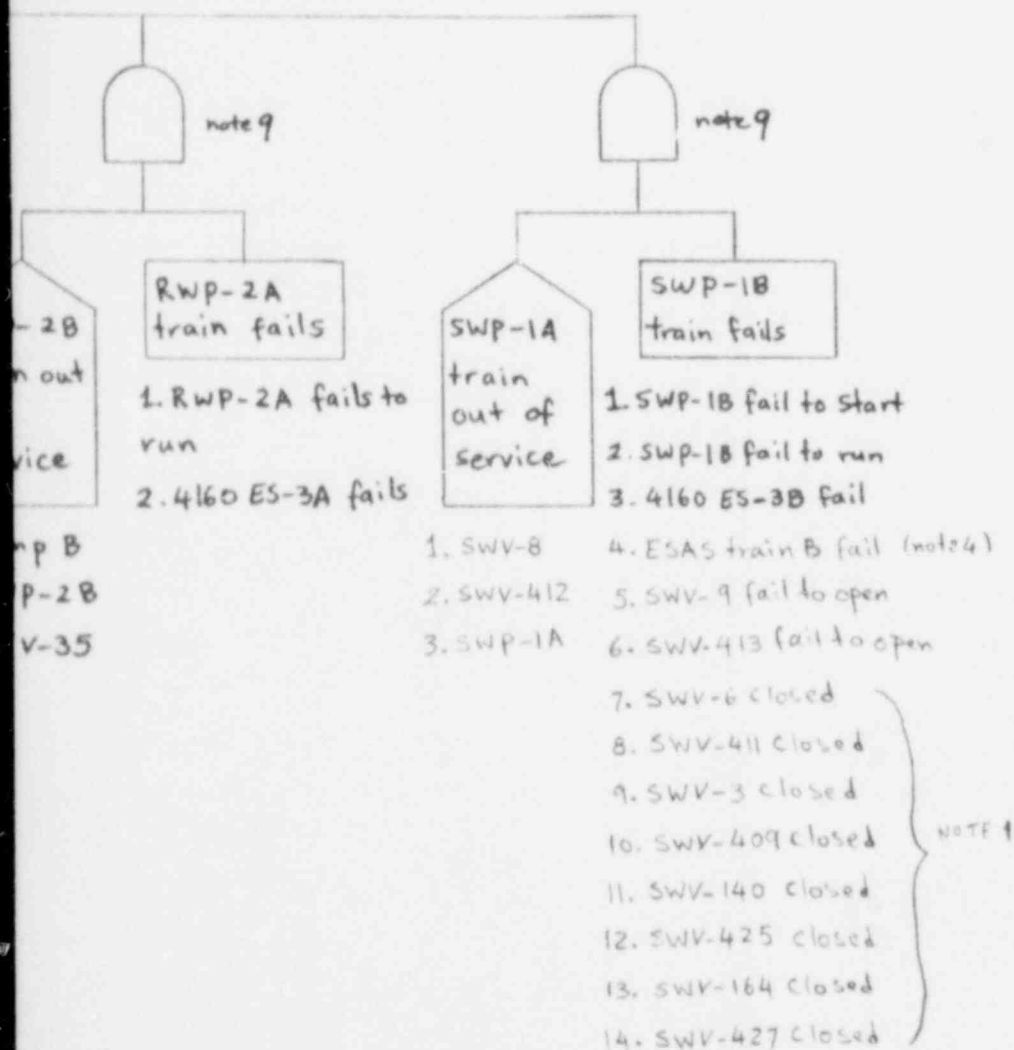 note 9
note 9
- 2B
n out
vice
RWP-2A
train fails
SWP-1A
train
out of
service
SWP-1B
train fails
mp B
P-2B
V-35
1. RWP-2A fails to
run
2. 4160 ES-3A fails
1. SWV-8
2. SWV-412
3. SWP-1A
1. SWP-1B fail to start
2. SWP-1B fail to run
3. 4160 ES-3B fail
4. ESAS train B fail (note 4)
5. SWV-9 fail to open
6. SWV-413 fail to open
7. SWV-6 closed
8. SWV-411 closed
9. SWV-3 closed
10. SWV-409 closed
11. SWV-140 closed
12. SWV-425 closed
13. SWV-164 closed
14. SWV-427 closed
NOTE 1